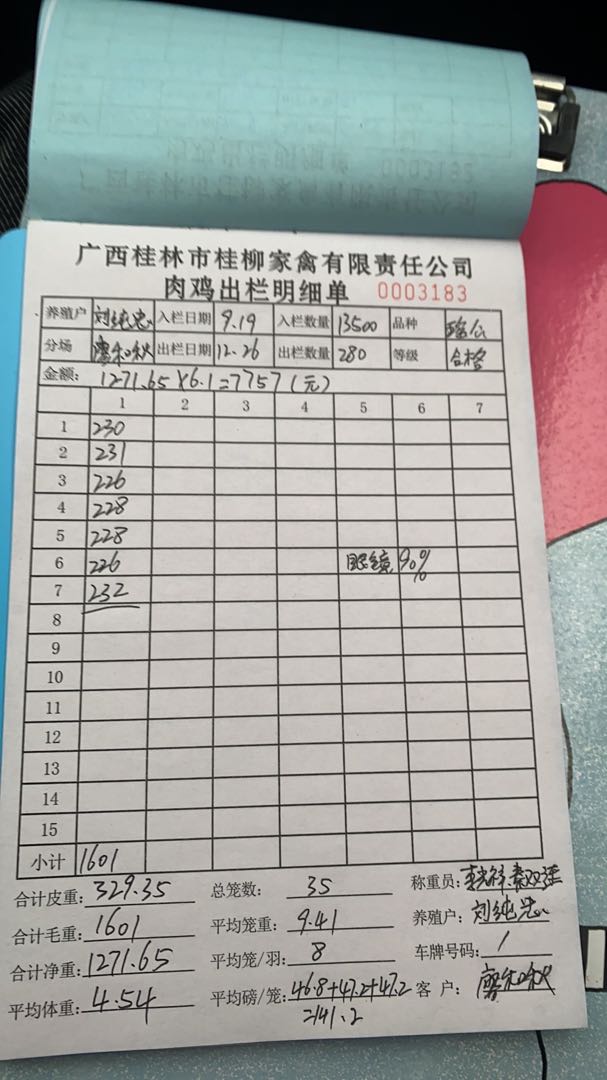 广西桂林市桂柳家禽有限责任公司
肉鸡出栏明细单 0003183
养殖户 刘纯忠 入栏日期 9.19 入栏数量 13500 品种
分场 出栏日期 12.26 出栏数量 280 等级 合格
金额: 1271.65×6.1=7757(元)
1 2 3 4 5 6 7
1 230
2 231
3 226
4 228
5 228
6 226 眼镜 90%
7 232
8
9
10
11
12
13
14
15
小计 1601
合计皮重: 329.35 总笼数: 35 称重员:
合计毛重: 1601 平均笼重: 9.41 养殖户: 刘纯忠
合计净重: 1271.65 平均笼/羽: 8 车牌号码: /
平均体重: 4.54 平均磅/笼: 46.8+47.2+47.2 客户:
=141.2